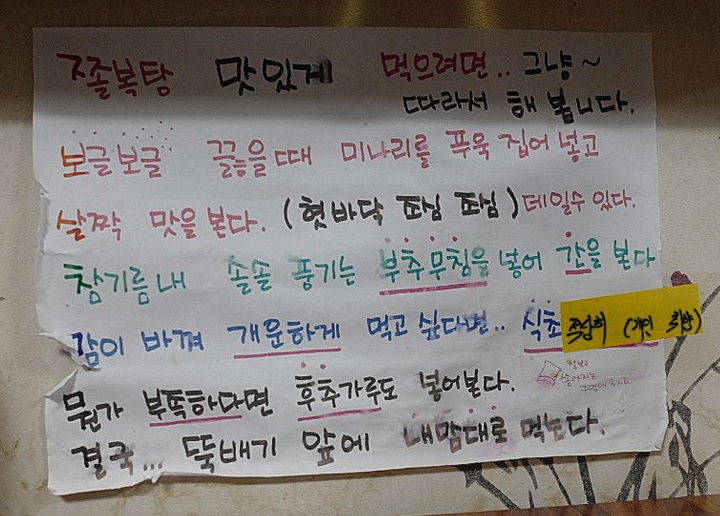 쫄복탕 맛있게 먹으려면.. 그냥~
따라서 해 봅니다.
보글보글 끓을때 미나리를 푸욱 집어 넣고
살짝 맛을 본다. (혓바닥 조심 조심) 데일수 있다.
참기름내 솔솔 풍기는 부추무침을 넣어 간을 본다
맘이 바껴 개운하게 먹고 싶다면.. 식초
뭔가 부족하다면 후추가루도 넣어본다.
쏟아지는
결국... 뚝배기 앞에 내맘대로 먹는다.